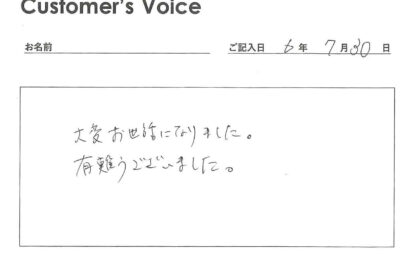 Customer's Voice
お名前 ご記入日 6年 7月30日
大変お世話になりました。
有難うございました。